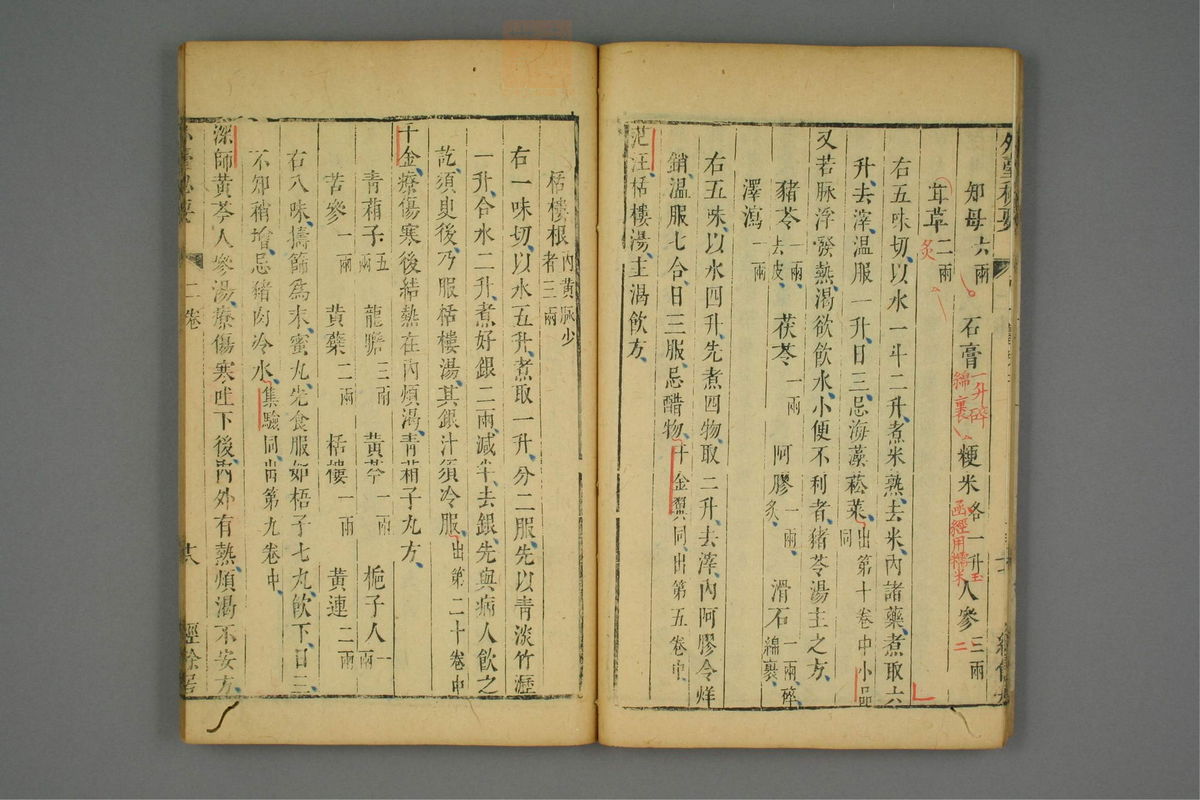 外臺秘要
知母六兩 石膏 粳米 一升 人參三兩
一升碎綿裹
玉函經用糯米
二
甘草二兩
炙
右五味切以水一斗二升煮米熟去米內諸藥煮取六
升去滓溫服一升日三忌海藻菘菜出第十卷中小品同
又若脉浮發熱渴欲飲水小便不利者豬苓湯主之方
豬苓一兩去皮 茯苓一兩 阿膠一兩炙 滑石一兩碎綿裹
澤瀉一兩
右五味以水四升先煮四物取二升去滓內阿膠令烊
銷溫服七合日三服忌醋物千金翼同出第五卷中
范汪栝樓湯主渴飲方
栝樓根內黃脉少者三兩
右一味切以水五升煮取一升分二服先以青淡竹瀝
一升合水二升煮好銀二兩減半去銀先與病人飲之
訖須臾後乃服栝樓湯其銀汁須冷服出第二十卷中
千金療傷寒後結熱在內煩渴青葙子丸方
青葙子五兩 龍膽三兩 黃芩一兩 梔子人一兩
苦參一兩 黃蘗二兩 栝樓一兩 黃連二兩
右八味擣篩為末蜜丸先食服如梧子七丸飲下日三
不知稍增忌豬肉冷水集驗同出第九卷中
深師黃芩人參湯療傷寒吐下後內外有熱煩渴不安方
二卷
經餘居